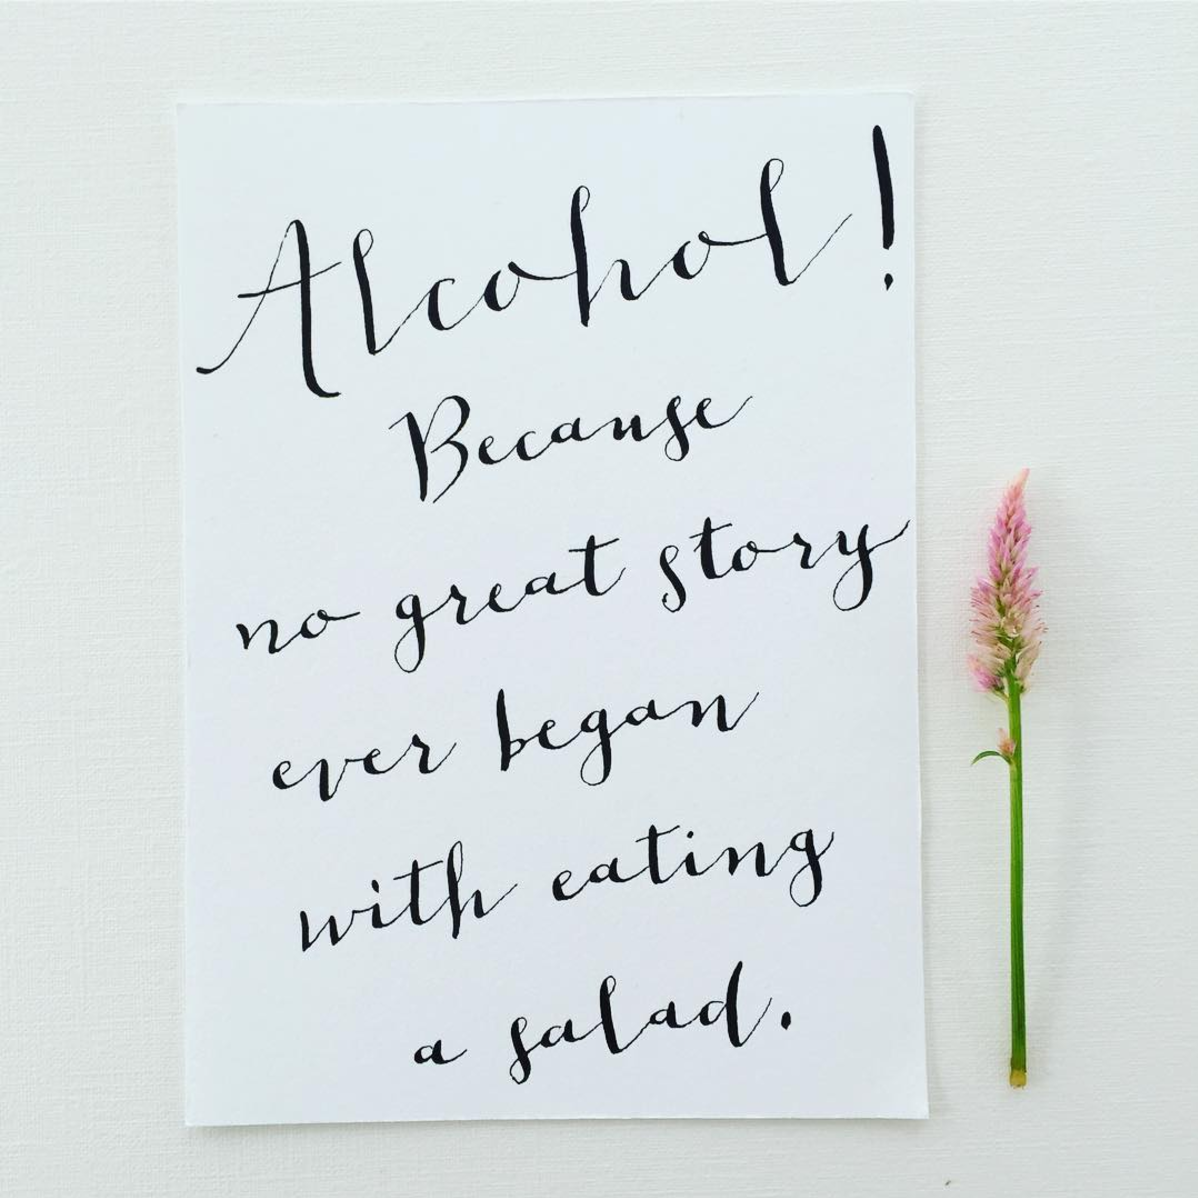 Alcohol!
Because
no great story
ever began
with eating
a salad.